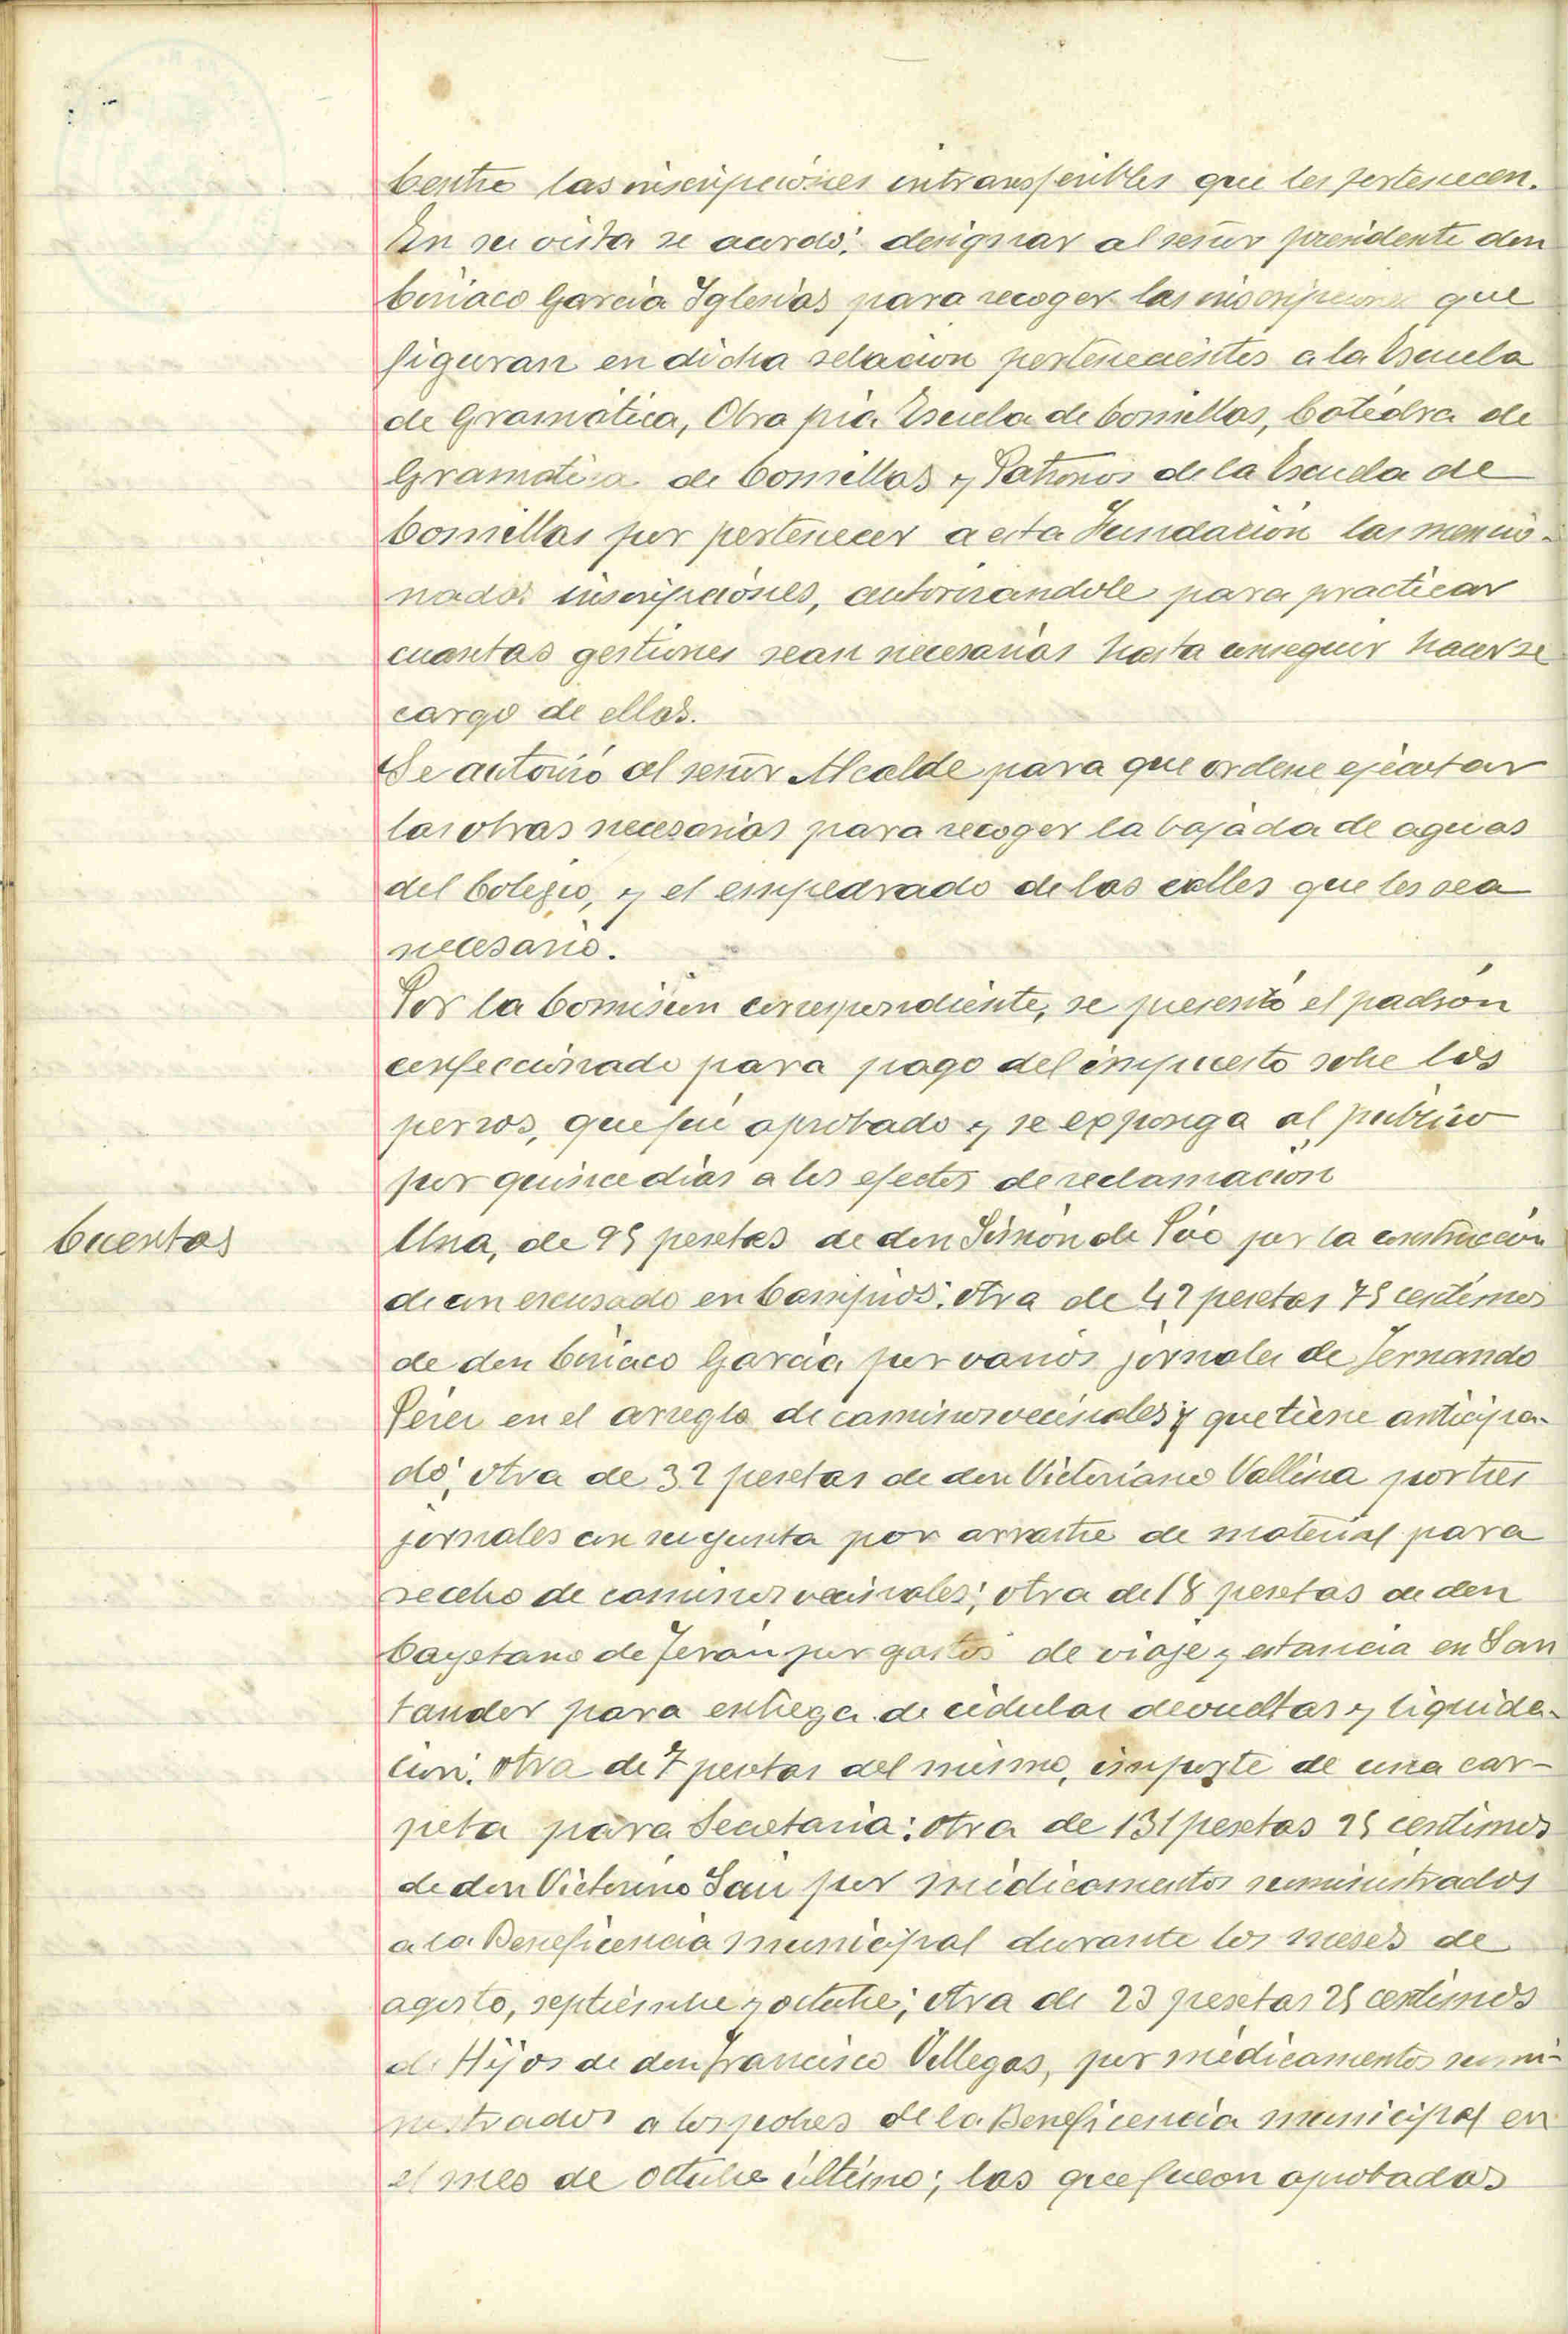 Centro las inscripciones intransferibles que les pertenecen.
En su vista se acordó: designar al señor presidente don
Ciriaco Garcia Iglesias para recoger las inscripciones que
figuran en dicha relacion pertenecientes a la Escuela
de Gramática, Obra pia Escuela de Comillas, Catédra de
Gramatica de Comillas y Patronos de la Escuela de
Comillas por pertenecer a esta Fundación las mencio-
nadas inscripciones, autorizandole para practicar
cuantas gestiones sean necesarias hasta conseguir hacerse
cargo de ellas.
Se autorizó al señor Alcalde para que ordene ejecutar
las obras necesarias para recoger la bajada de aguas
del Colegio, y el empedrado de las calles que les sea
necesario.
Por la Comision correspondiente, se presentó el padrón
confeccionado para pago del impuesto sobre los
perros, que fué aprobado y se exponga al publico
por quince dias a los efectos de reclamacion
Cuentas
Una, de 95 pesetas de don Simón de Póo por la construccion
de un escusado en Campios; otra de 42 pesetas 75 centimos
de don Ciriaco Garcia por varios jornales de Fernando
Pérez en el arreglo de caminos vecinales y que tiene anticipa-
do; otra de 32 pesetas de don Victoriano Vallina por tres
jornales con su yunta por arrastre de material para
recebo de caminos vecinales; otra de 18 pesetas de don
Cayetano de Terán por gastos de viaje y estancia en San
tander para entrega de cédulas devueltas y liquida-
cion; otra de 7 pesetas del mismo, importe de una car-
peta para Secretaria; otra de 131 pesetas 25 centimos
de don Victorino San por medicamentos suministrados
a la Beneficencia municipal durante los meses de
agosto, septiembre y octubre; otra de 23 pesetas 25 centimos
de Hijos de don Francisco Villegas, por medicamentos sumi-
nistrados a los pobres de la Beneficencia municipal en
el mes de octubre último; las que fueron aprobadas